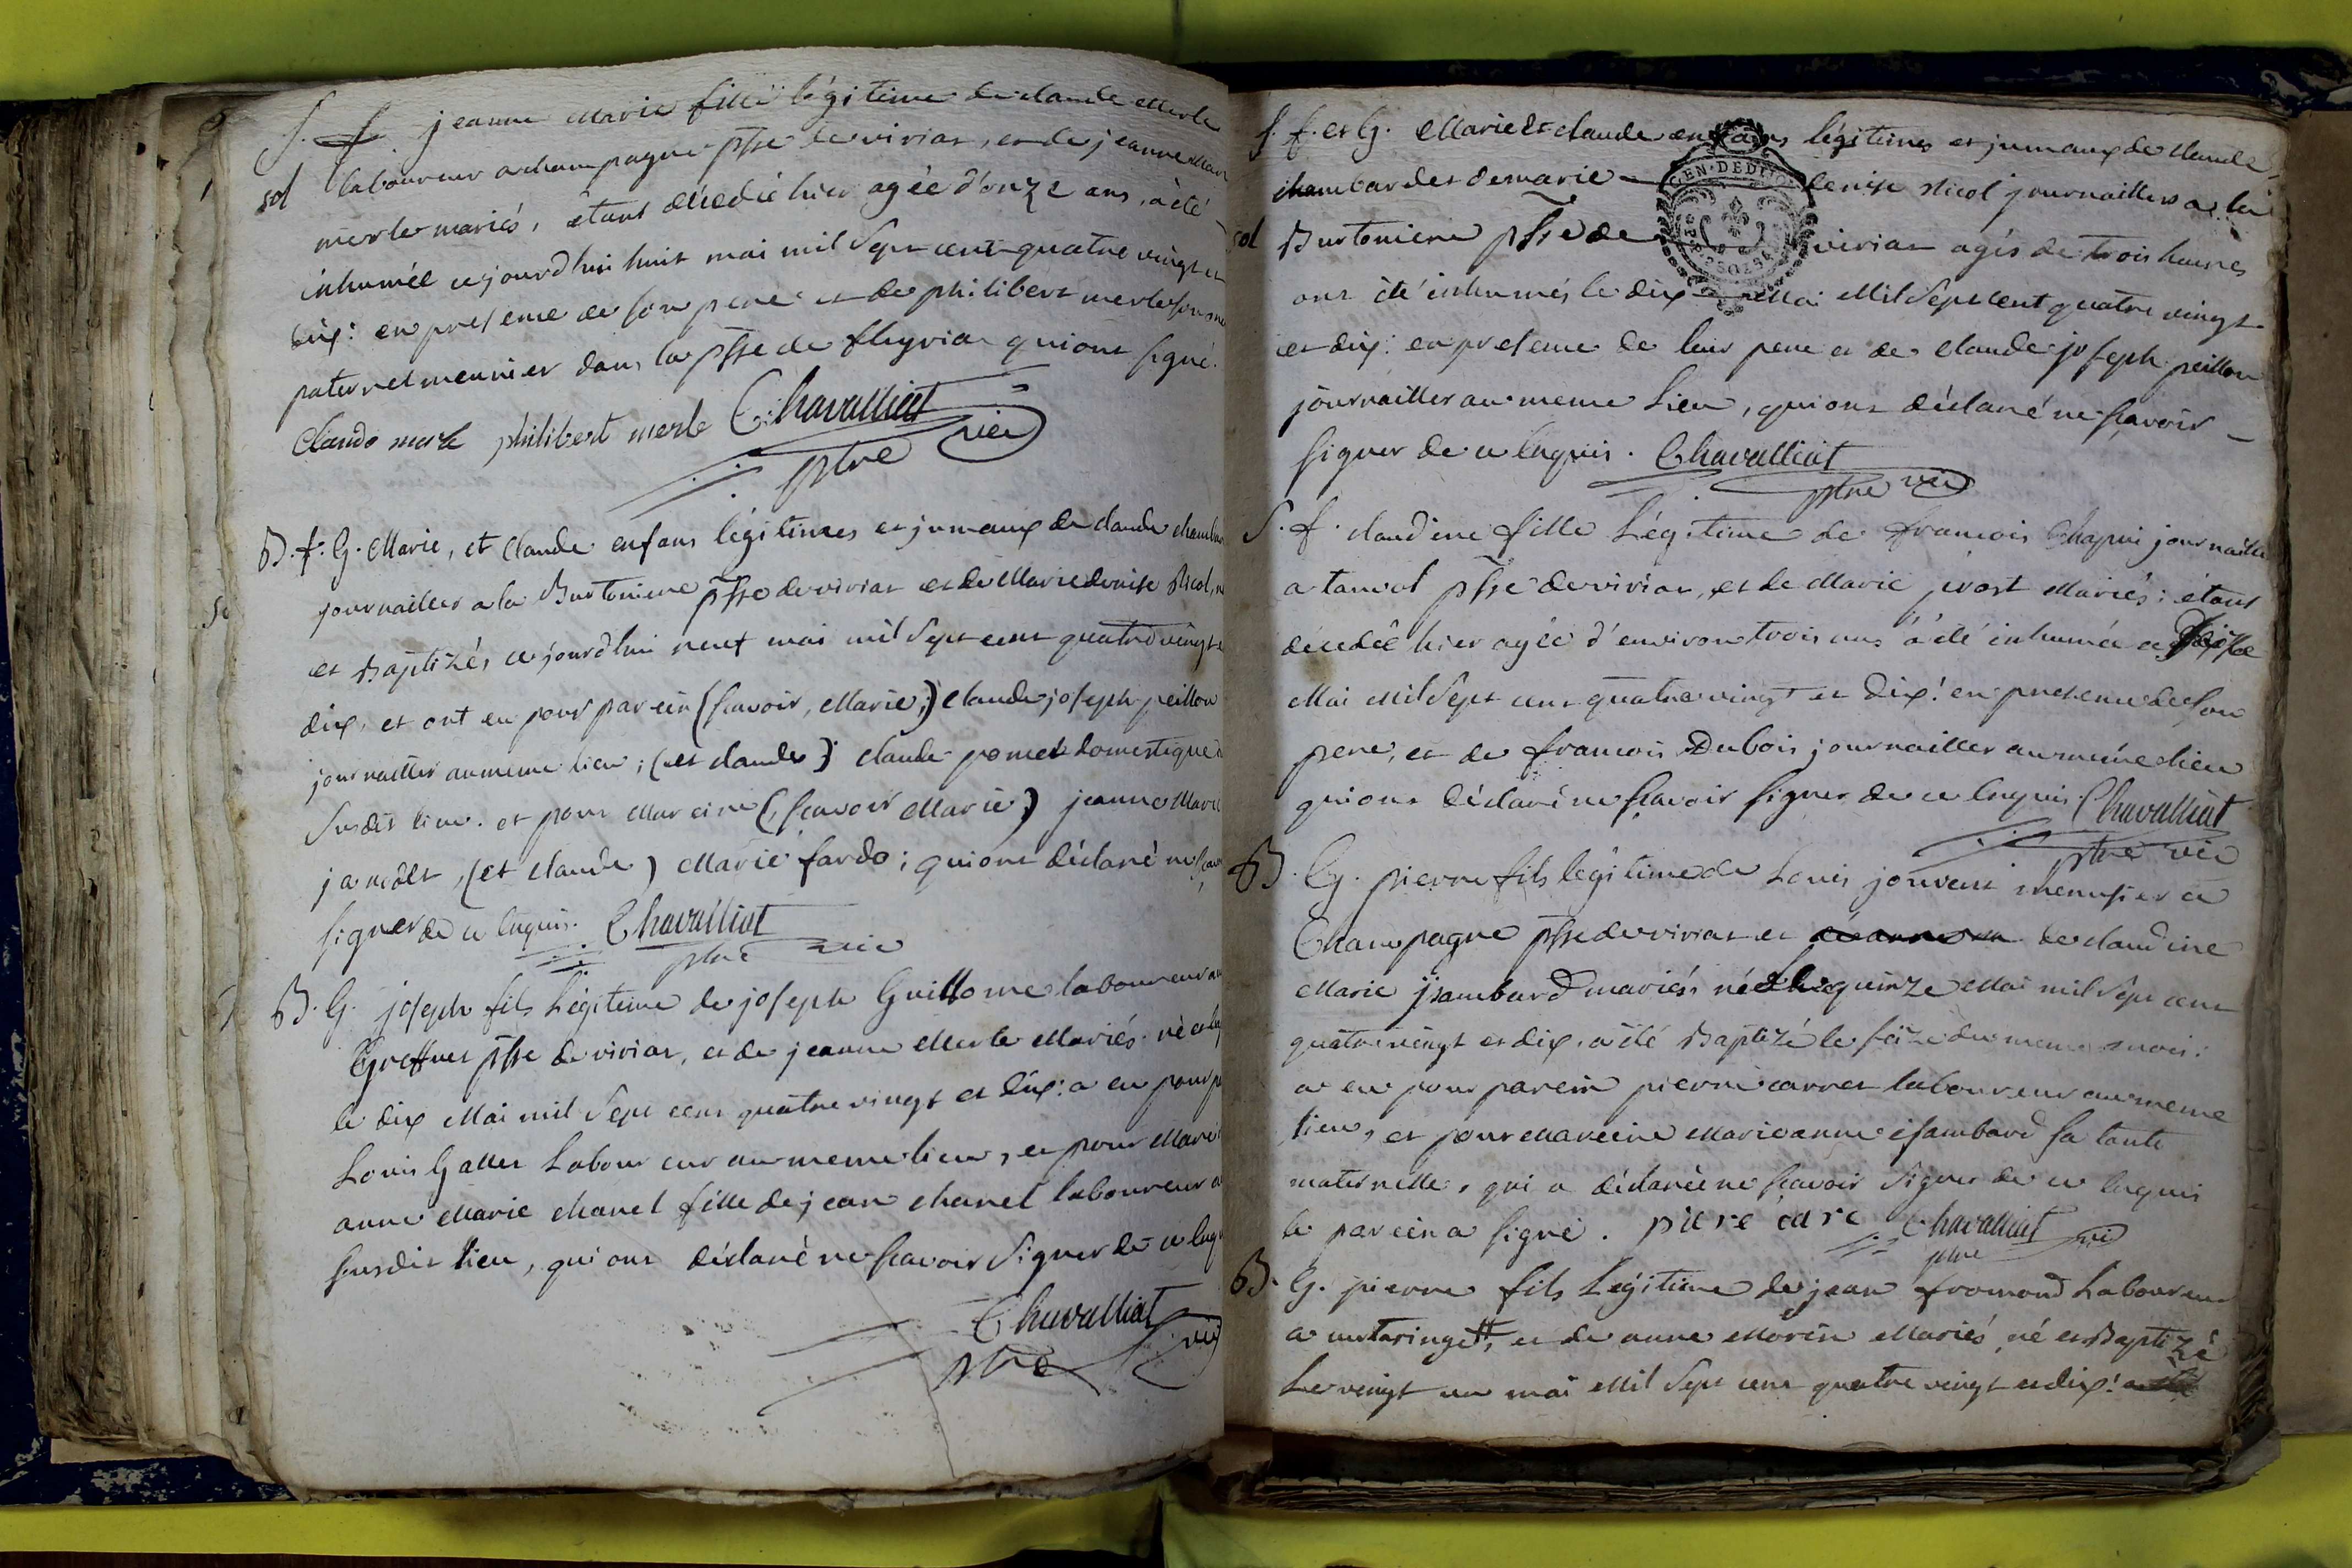 S. f. jeanne Marie fille légitime de claude Merle
sol laboureur a champagne psse de viriat, et de jeanne Mari
merle mariés, étant décedée hier agée d'onze ans, a été
inhumée ce jourd'hui huit mai mil Sept cent quatre vingt et
dix: en presence de son pere et de philibert merle son
paternel meunier dans la psse de fleyriat qui ont signé.
Claude merle philibert merle Chavalliat
ptre vic
B. f. G. Marie, et Claude enfans légitimes et jumaux de claude chamba
journaillier a la Burtoniere psse de viriat et de Marie denise Nicol, n
et Baptizés ce jourd'hui neuf mai mil Sept cent quatre vingt e
dix, et ont eu pour parein (scavoir, Marie,) claude joseph peillon
journaillier au meme lieu; (et claude) claude pomet domestique
Susdit lieu. et pour Mareine (scavoir Marie) jeanne Marie
janodet, (et claude) Marie fardo; qui ont déclaré ne sca
signer de ce enquis. Chavalliat
ptre vic
B. G. joseph fils Légitime de joseph Guillome laboureur au
Greffets psse de viriat, et de jeanne Merle Mariés. né
le dix Mai mil Sept cent quatre vingt et dix: a eu pour p
Louis Gallet Laboureur au meme lieu, et pour Marei
anne Marie chanel fille de jean chanel laboureur a
susdit lieu, qui ont déclaré ne scavoir Signer de ce enq
Chavalliat vic
ptre
S. f. et G. Marie et claude enfans légitimes et jumaux de claude
GEN. DE DIJON
chambard et de marie - denise Nicol journaillers a la
sol Burtoniere psse de viriat agés de trois heures
ont été inhumés le dix Mai Mil Sept cent quatre vingt
et dix: en presence de leur pere et de claude joseph peillon
journaillier au meme Lieu, qui ont déclaré ne scavoir -
signer de ce enquis. Chavalliat
ptre vic
S. f. claudine fille Légitime de francois Chapui journaillier
a tanvol psse de viriat, et de Marie prost Mariés: étant
décedée hier agée d'environ trois ans a été inhumée ce
Mai Mil Sept cent quatre vingt et dix! en presence de son
pere, et de francois Dubois journaillier au meme lieu
qui ont déclaré ne scavoir signer de ce enquis. Chavalliat
ptre vic
B. G. pierre fils légitime de Louis jouvent menusier a
Champagne psse de viriat et de claudine
Marie jsambard mariés, né le quinze Mai mil Sept cent
quatre vingt et dix, a été Baptizé le seize du meme mois:
a eu pour parein pierre carret laboureur au meme
lieu, et pour Mareine Marie anne isambard sa tante
maternelle, qui a déclarée ne scavoir Signer de ce enquis
le parein a signé. piere care Chavalliat vic
ptre
B. G. pierre fils Légitime de jean fromond Laboureur
a curtaringett, et de anne Morin Mariés, né et Baptizé
Le vingt un mai Mil Sept cent quatre vingt et dix!